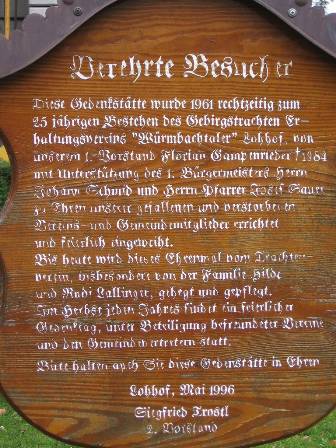 Verehrte Besucher
Diese Gedenkstätte wurde 1961 rechtzeitig zum
25 jährigen Bestehen des Gebirgstrachten Er-
haltungsvereins "Würmbachtaler" Lohhof, von
unserem 1. Vorstand Florian Gampenrieder †1984
mit Unterstützung des 1. Bürgermeisters Herrn
Johann Schmid und Herrn Pfarrer Josef Sauer
zu Ehren unserer gefallenen und verstorbenen
Vereins- und Gemeindemitglieder errichtet
und feierlich eingeweiht.
Bis heute wird dieses Ehrenmal vom Trachten-
verein, insbesondere von der Familie Hilde
und Rudi Lallinger, gehegt und gepflegt.
Im Herbst jeden Jahres findet ein feierlicher
Gedenktag, unter Beteiligung befreundeter Vereine
und den Gemeindevertretern statt.
Bitte halten auch Sie diese Gedenkstätte in Ehren
Lohhof, Mai 1996
Siegfried Trostl
2. Vorstand